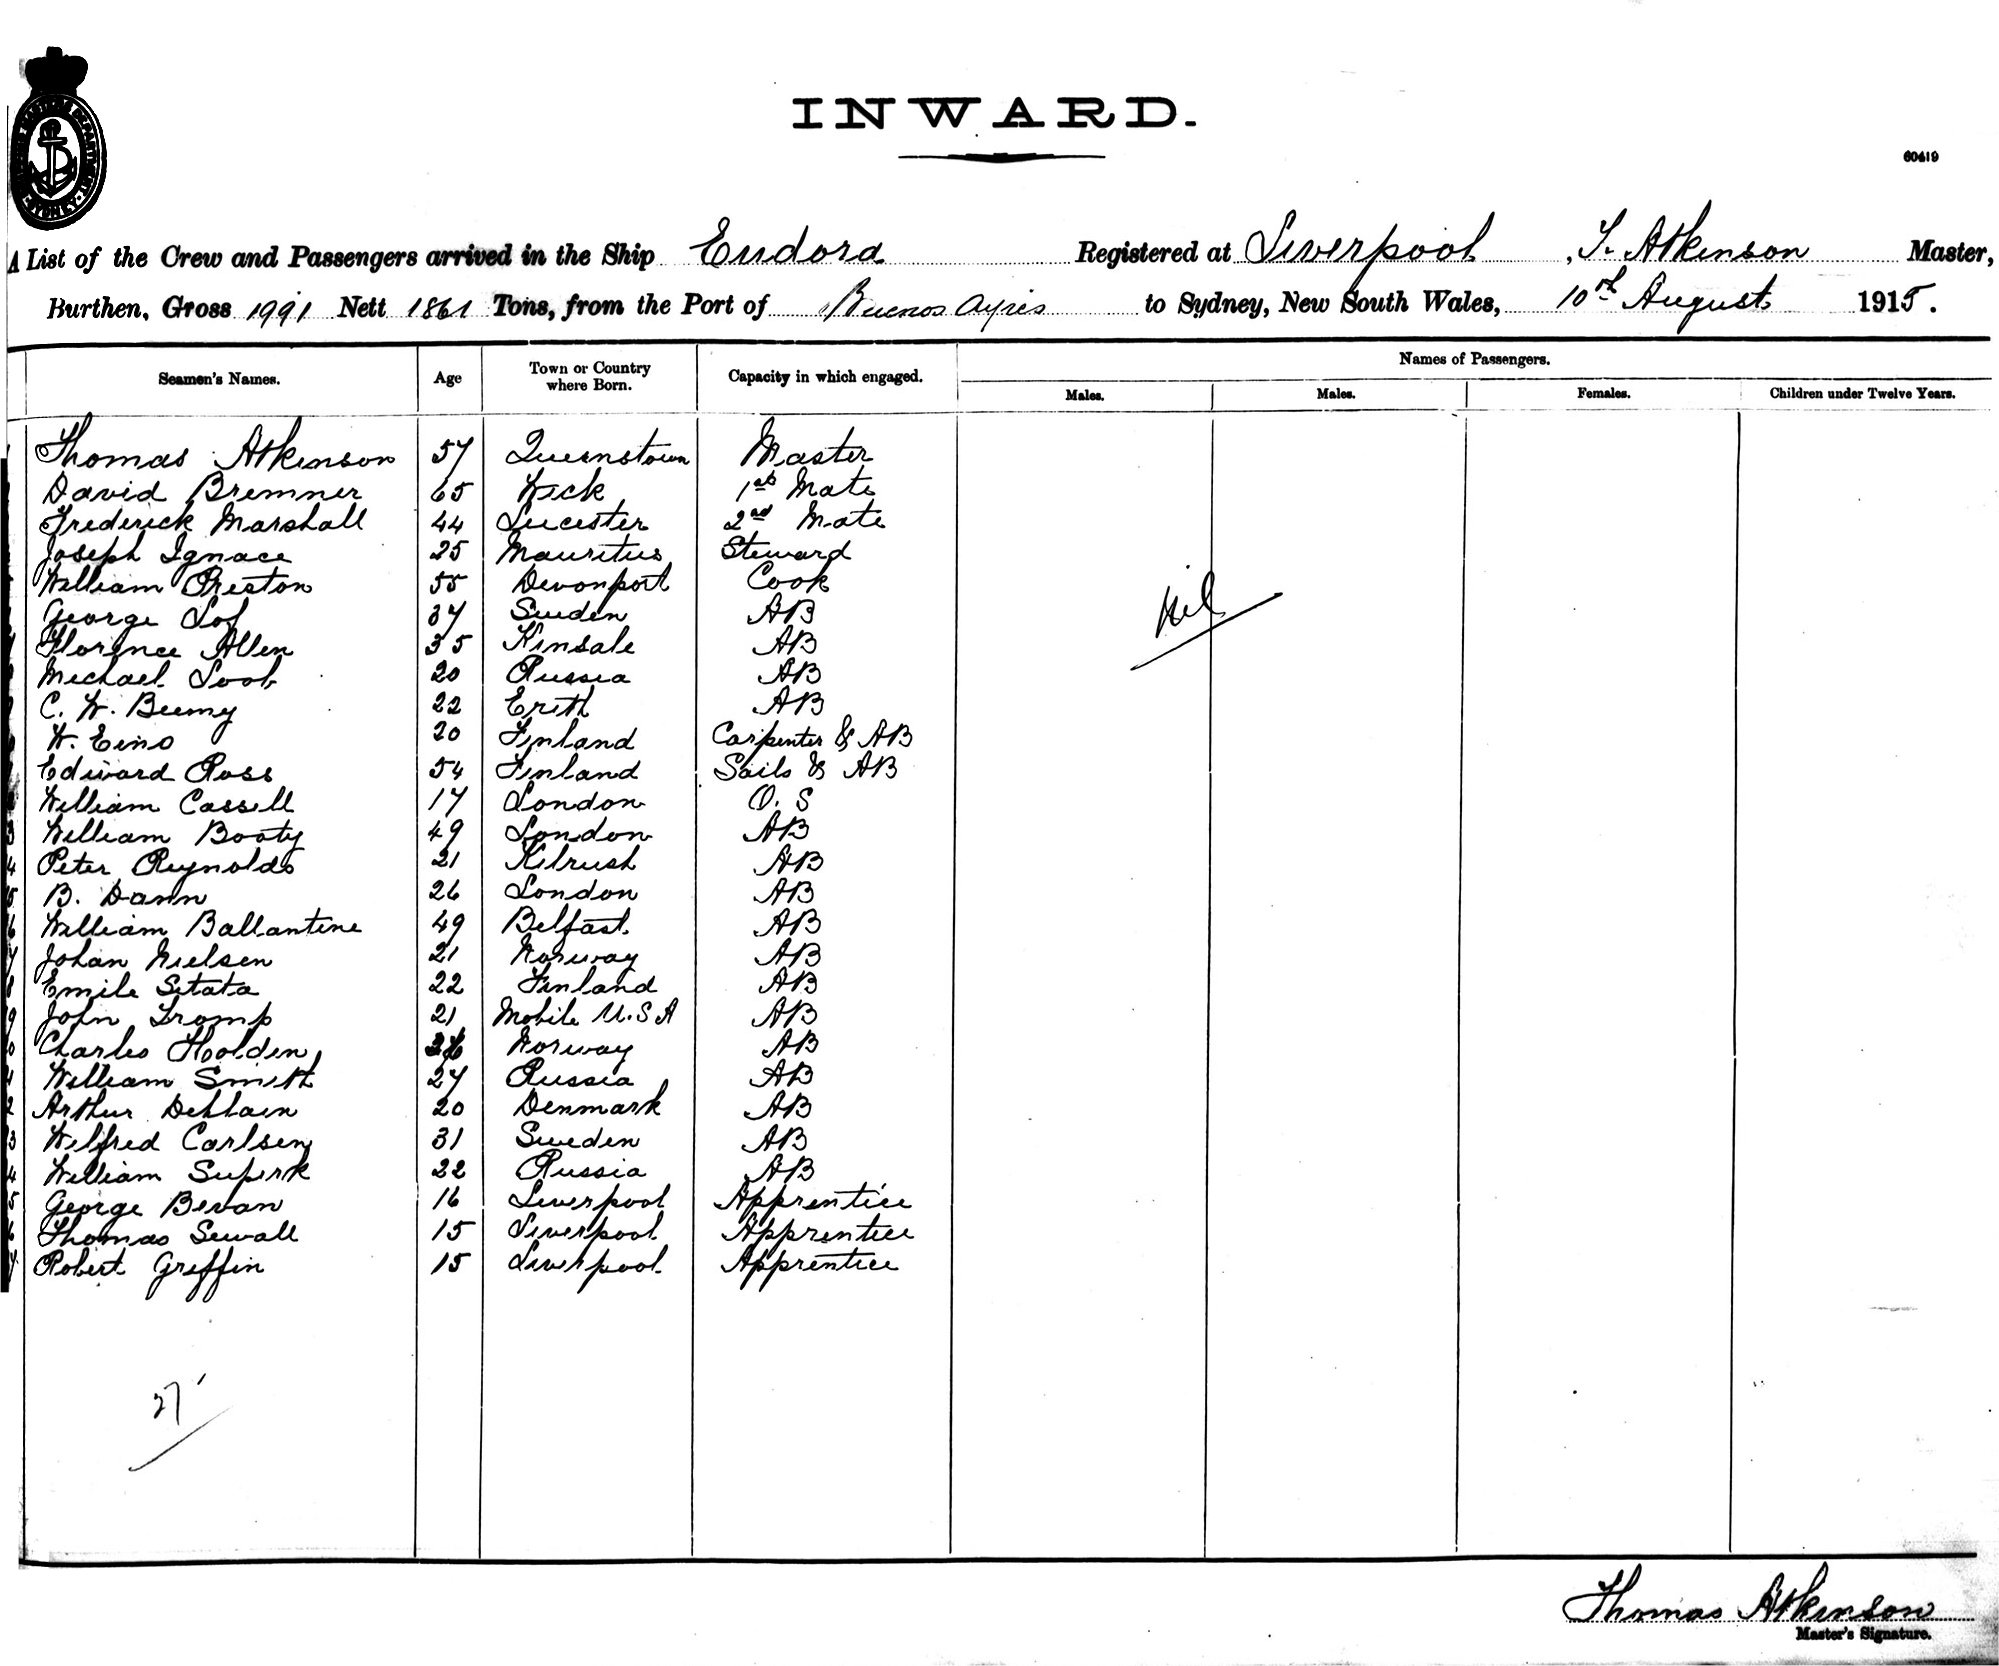 INWARD.
60419
SYDNEY
A List of the Crew and Passengers arrived in the Ship Eudora Registered at Liverpool, T. Atkinson Master,
Burthen, Gross 1991 Nett 1861 Tons, from the Port of Buenos Ayres to Sydney, New South Wales, 10th August 1915.
Seamen's Names. Age Town or Country where Born. Capacity in which engaged. Names of Passengers.
Males. Males. Females. Children under Twelve Years.
Thomas Atkinson 57 Queenstown Master
David Bremner 65 Wick 1st Mate
Frederick Marshall 44 Leicester 2nd Mate
Joseph Ignace 25 Mauritus Steward
William Preston 55 Devonport Cook
George Lof 37 Sweden AB
Florence Allen 35 Kinsale AB
Michael Loob 20 Russia AB
C. W. Beemy 22 Erith AB
W. Eino 20 Finland Carpenter & AB
Edward Ross 54 Finland Sails & AB
William Cassell 17 London O. S
William Booty 49 London AB
Peter Reynolds 21 Kilrush AB
B. Dann 26 London AB
William Ballantine 49 Belfast. AB
Johan Nielsen 21 Norway AB
Emile Setata 22 Finland AB
John Tromp 21 Mobile U.S A AB
Charles Holden Norway AB
William Smith 27 Russia AB
Arthur 20 Denmark AB
Wilfred Carlsen 31 Sweden AB
William Superk 22 Russia AB
George Bevan 16 Liverpool Apprentice
Thomas Sewall 15 Liverpool Apprentice
Robert Griffin 15 Liverpool Apprentice
Nil
27
Thomas Atkinson
Master's Signature.